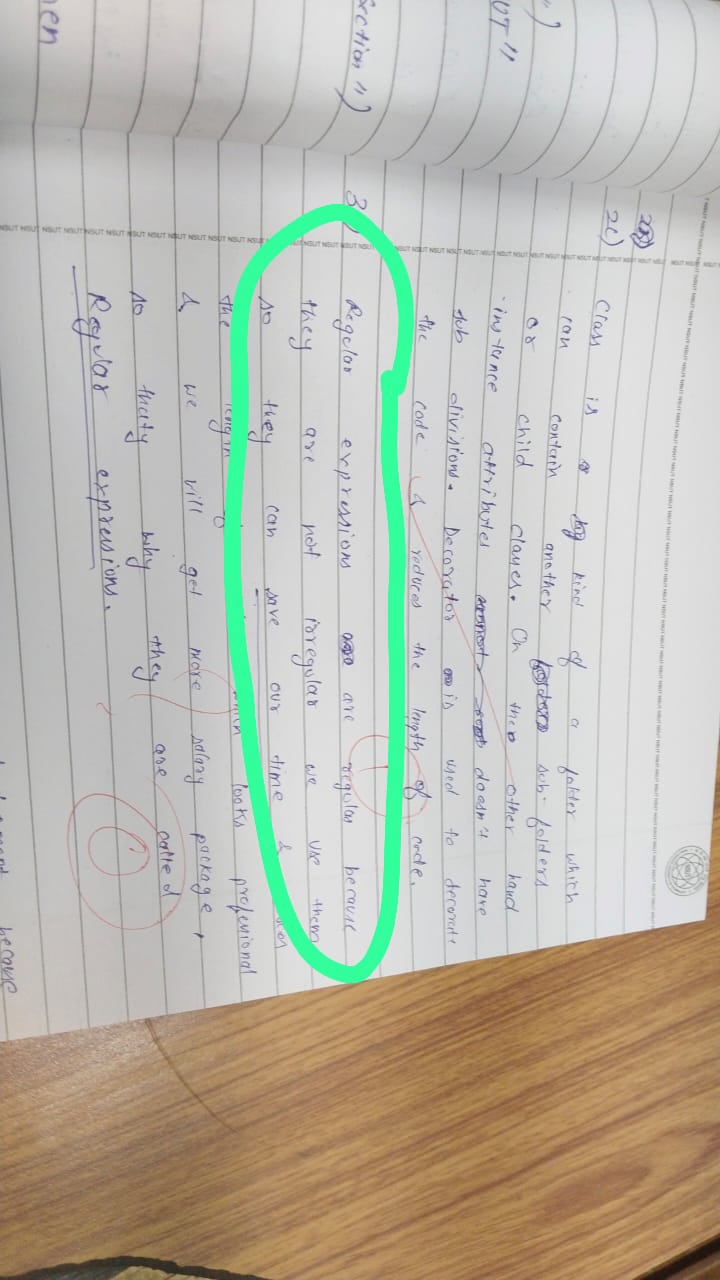 ection ")
UT"
")
en
2c)
Class is a kind of a folder which
can contain another sub-folders
or child classes. On the other hand
instance attributes doesn't have
sub divisions. Decorator is used to decorate
the code & reduces the length of code.
3
Regular expressions are regular because
they are not irregular we use them
so they can save our time &
the looks professional
& we will get more salary package,
so thaty why they are called
Regular expressions.
1
0
because
NSUT NSUT NSUT NSUT NSUT NSUT NSUT NSUT